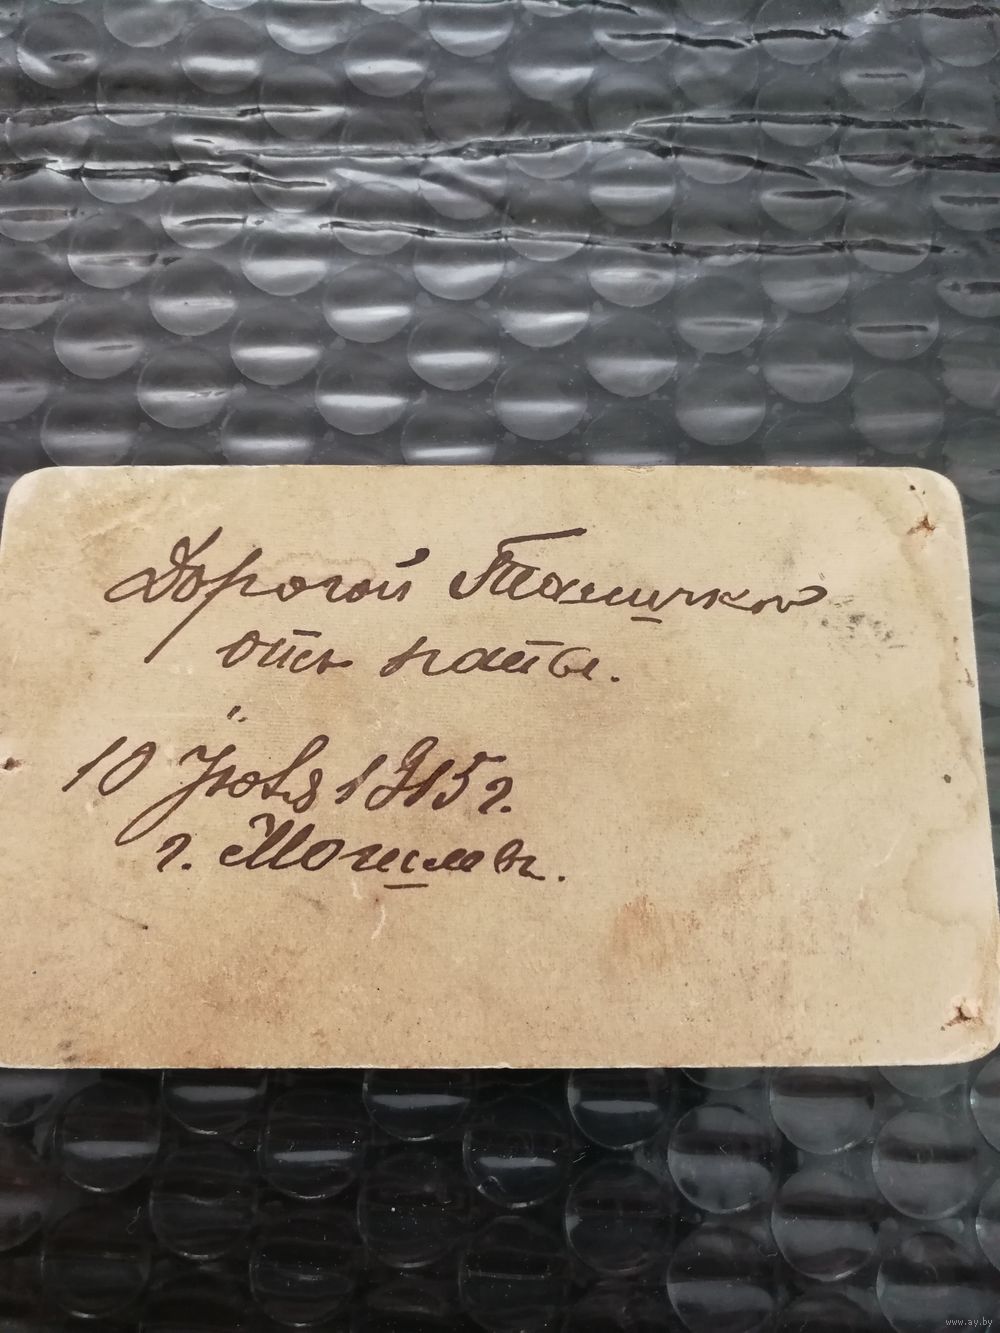 Дорогой Танички
отъ папы.
10 Iюня 1915 г.
г. Могилевъ.
www.ay.by